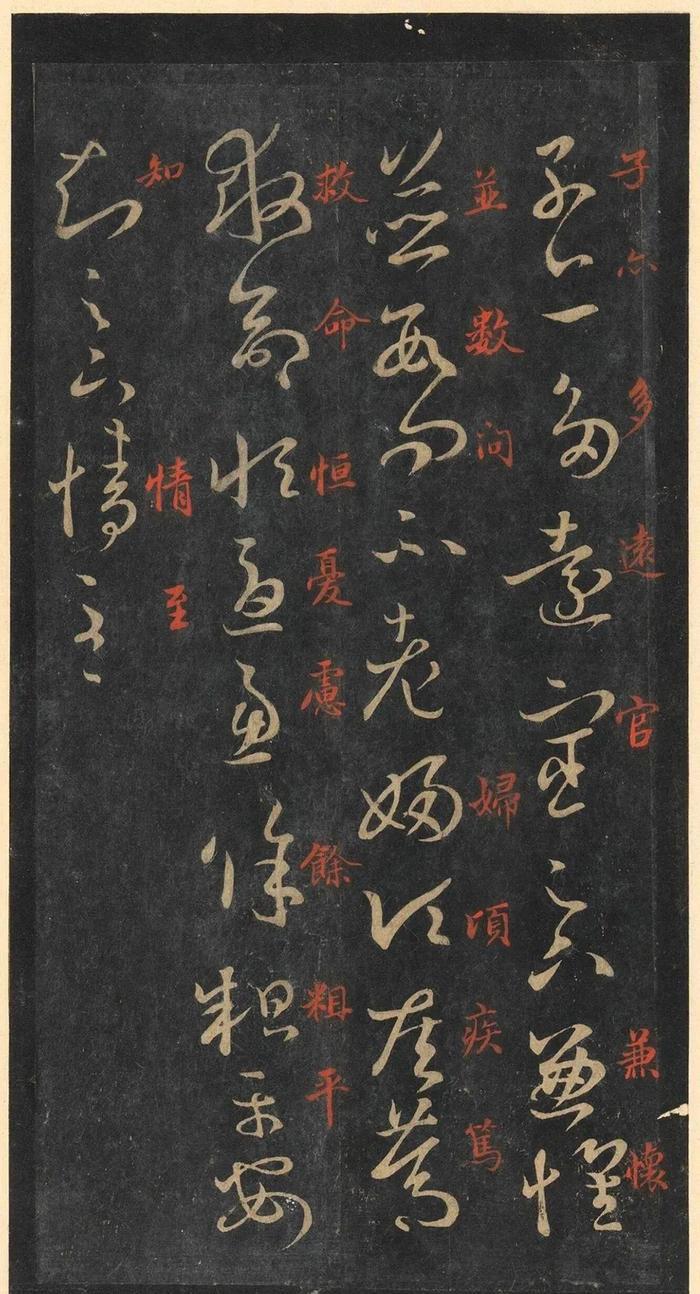 子亦多遠官兼懷
子亦多遠宦足下兼懷
並数问婦項疾篤
並數問不老婦頃疾篤
救命恒憂慮餘粗平
救命恒憂慮餘粗平安
知情至
知足下情至